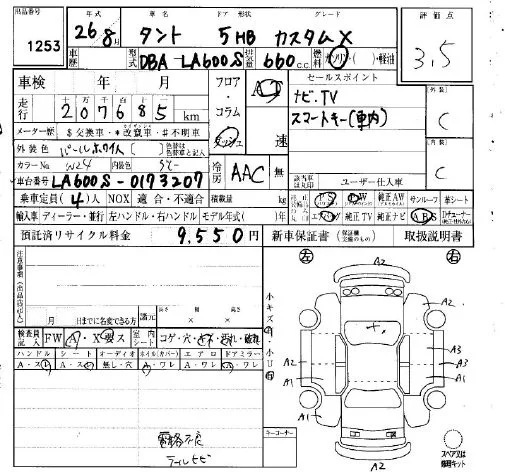 出品番号 年式 車名 ドア 形状 グレード 評価点
1253 26年8月 タント 5 HB カスタムX 3.5
車歴 型式 DBA-LA600S 排気量 660 c.c. 燃料 ガソリン・( )・軽油
車検 年 月 フロア・コラム・ダッシュ AT 速 セールスポイント 外装 C
走行 207685 km ナビ.TV
メーター歴 $交換車・*改竄車・#不明車 スマートキー(車内)
外装色 パールホワイト ( ) 色替は色替車と記入 内装 C
カラーNo W24 内装色 グレー 冷房 AAC 無
車台番号 LA600S-0173207 該当車は丸印 ユーザー仕入車
乗車定員(4)人 NOX 適合・不適合 積載量 kg 純正装備 PS PW 純正AW サンルーフ 革シート
輸入車 ディーラー・並行 左ハンドル・右ハンドル モデル年式( )年 エアバッグ 純正TV 純正ナビ ABS
預託済リサイクル料金 9,550円 新車保証書 取扱説明書
注意事項
左 右
A2
A2
A2 A3
A3
A1 A1
A1
A2
月 日までに名変できる方 諸元 長さ 幅 高さ × ×
小キズ 小U
検査員記入 FW A・X 要ス 室内シート コゲ・穴・キレ・汚れ・破れ
ハンドル シート オーディオ ホイル(カバー) エアロ ドアミラー
A・ス A・ス 無し・穴 A・ワレ A・ワレ A・ワレ
テールヒビ
キーコーナー
スペア又は修理キット